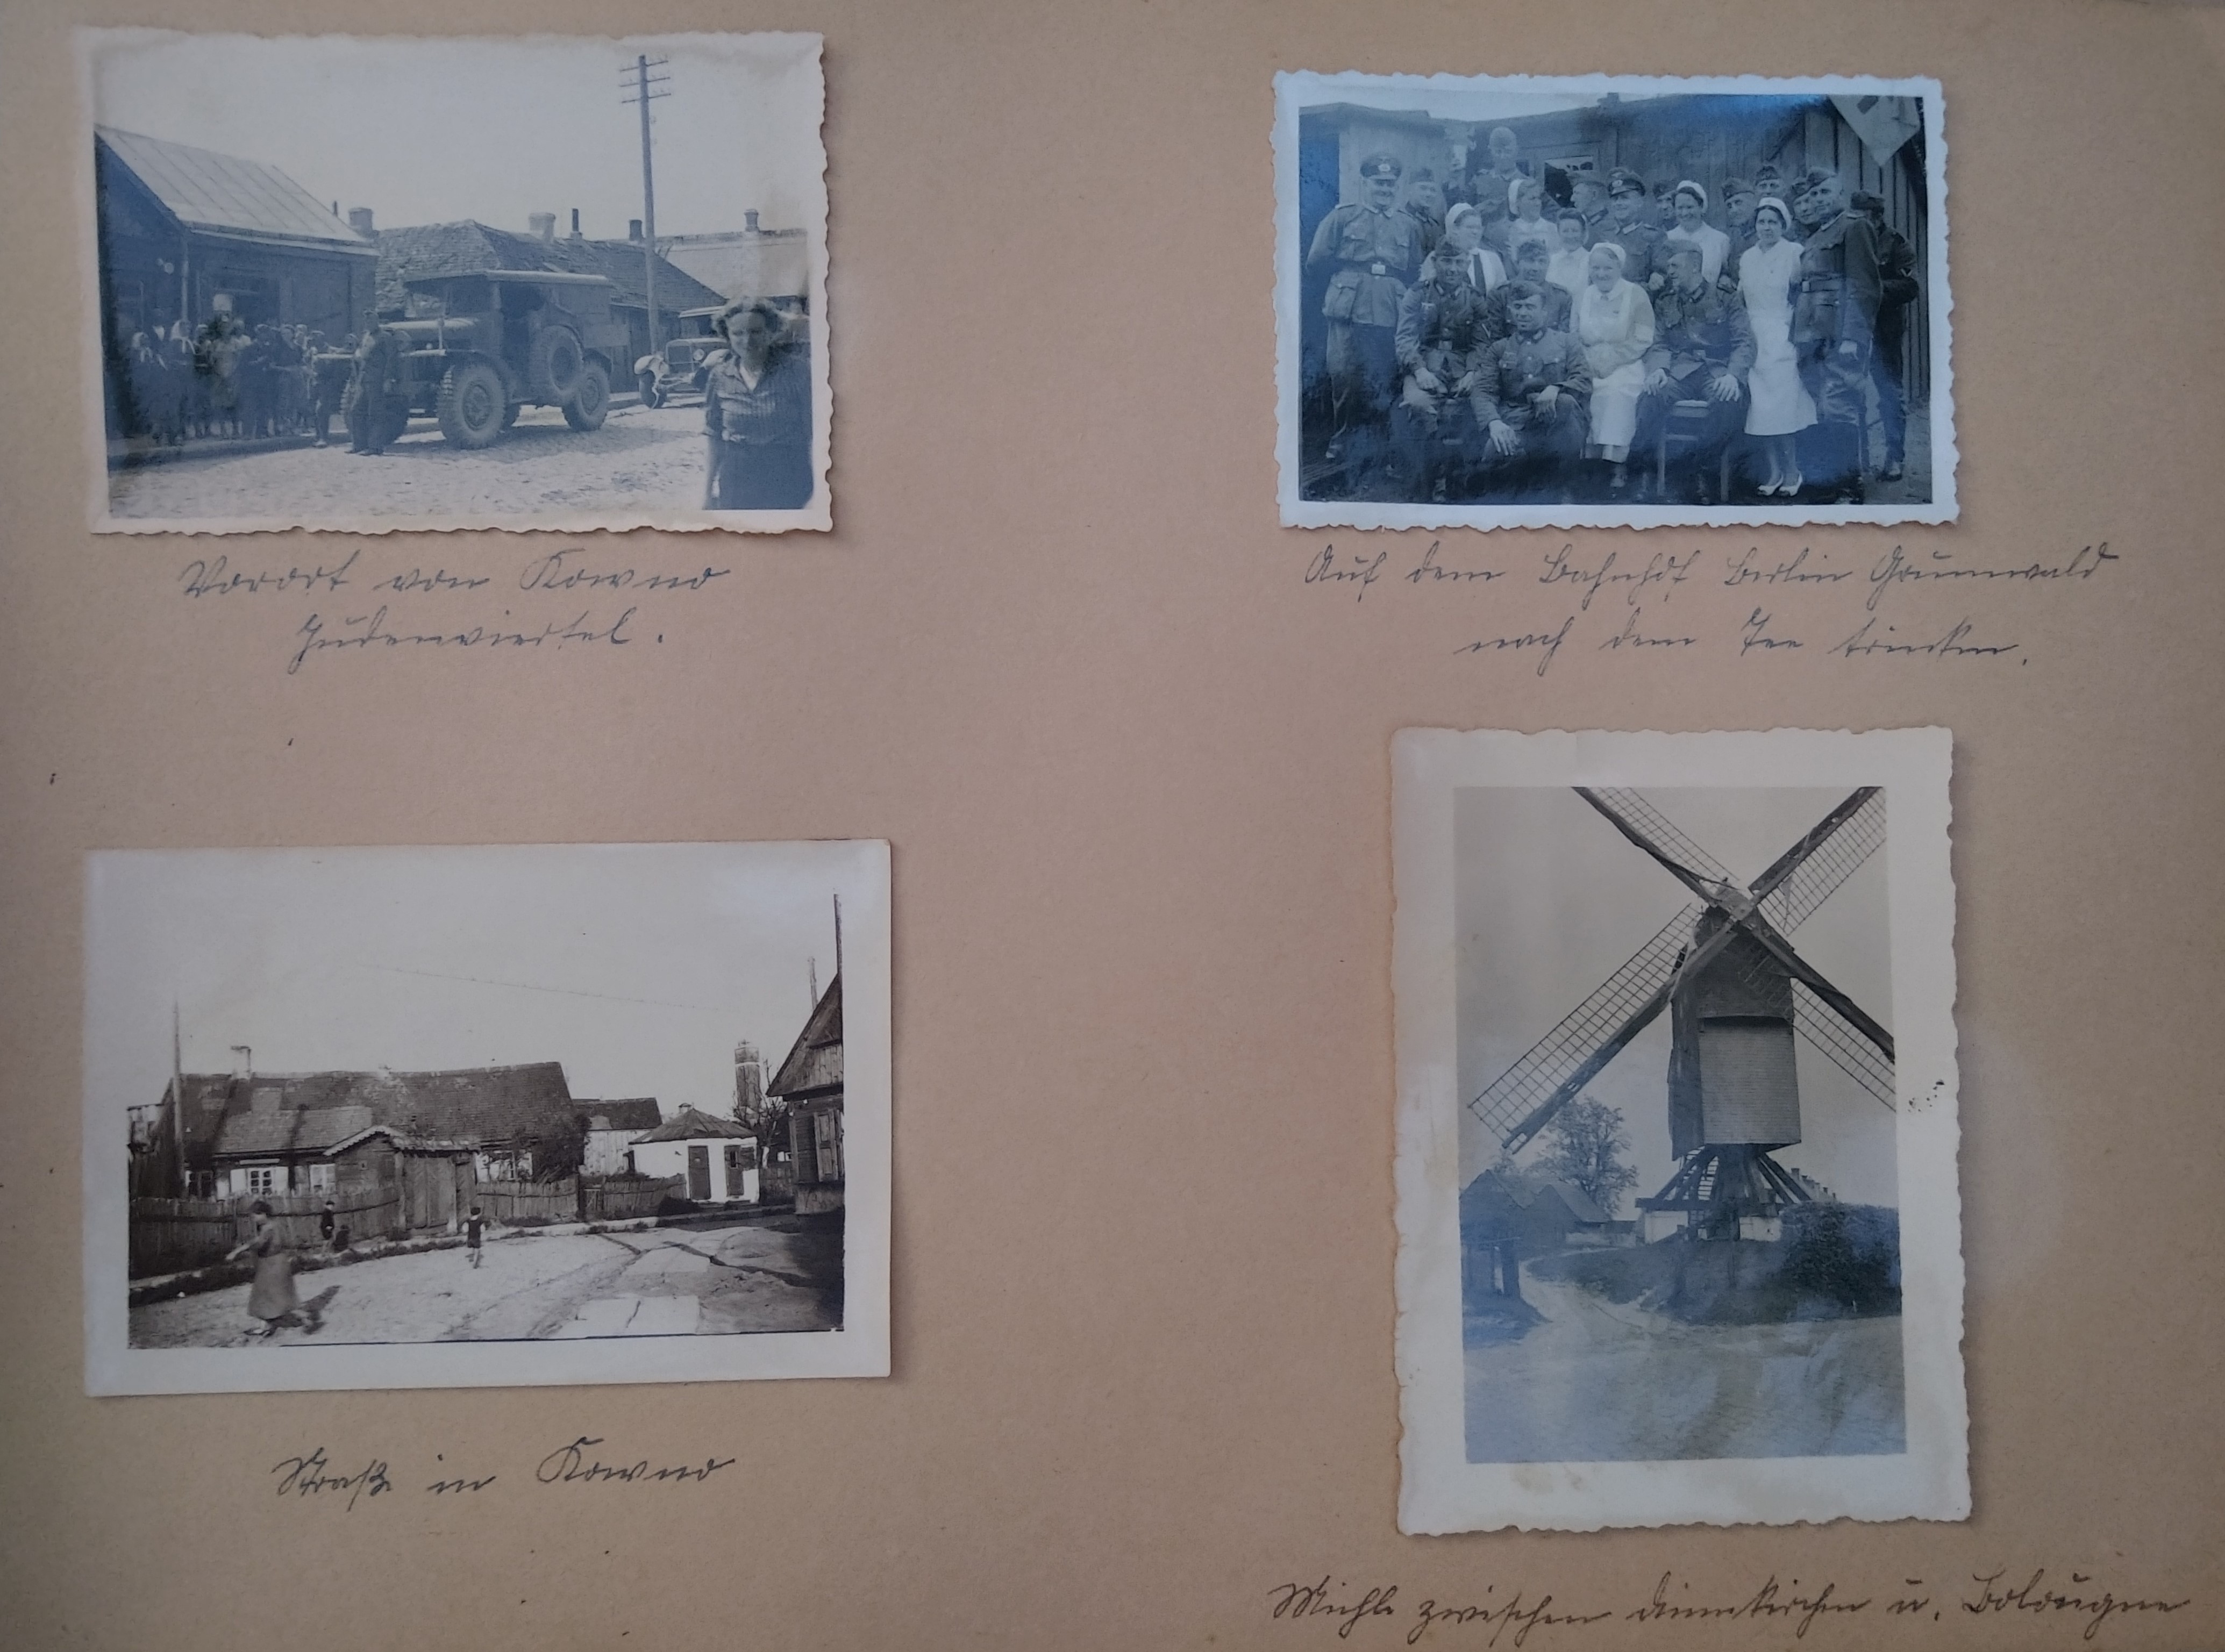 Vorort von Kowno
Judenviertel.
Auf dem Bahnhof Berlin Grunwald
nach dem Tee trinken.
Straße in Kowno
Mühle zwischen dünnkirchen u. Bolougne